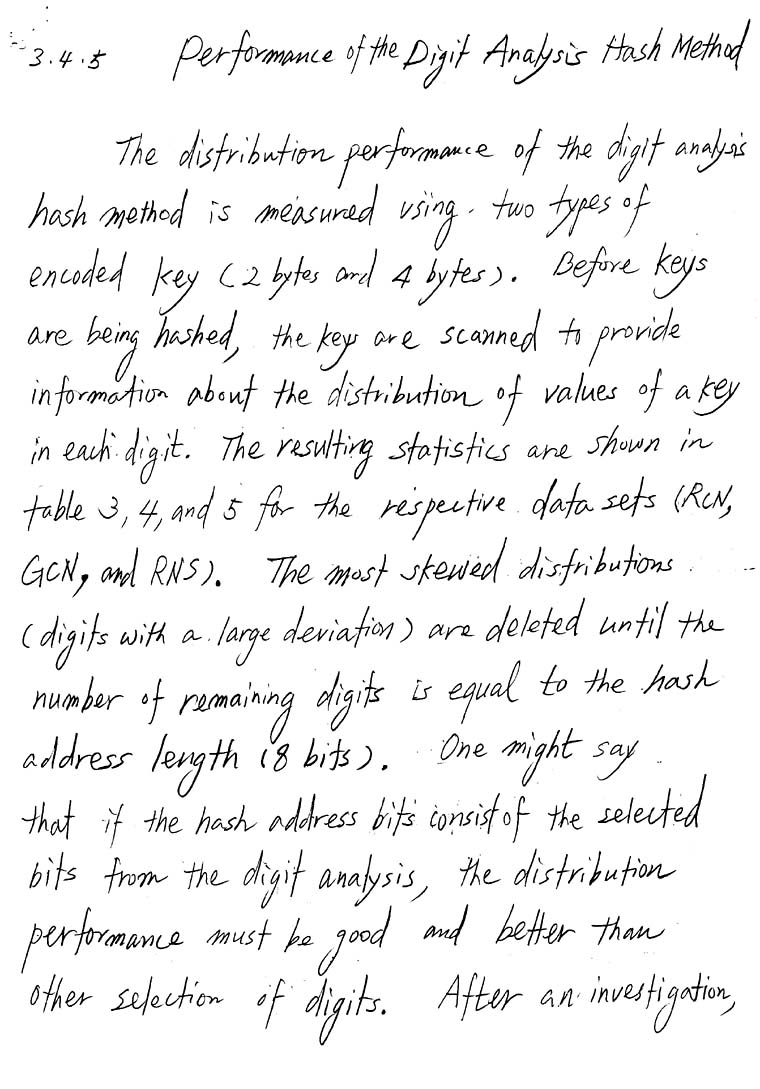 3.4.5 Performance of the Digit Analysis Hash Method
The distribution performance of the digit analysis
hash method is measured using two types of
encoded key (2 bytes and 4 bytes). Before keys
are being hashed, the keys are scanned to provide
information about the distribution of values of a key
in each digit. The resulting statistics are shown in
table 3, 4, and 5 for the respective data sets (RCN,
GCN, and RNS). The most skewed distributions
(digits with a large deviation) are deleted until the
number of remaining digits is equal to the hash
address length (8 bits). One might say
that if the hash address bits consist of the selected
bits from the digit analysis, the distribution
performance must be good and better than
other selection of digits. After an investigation,